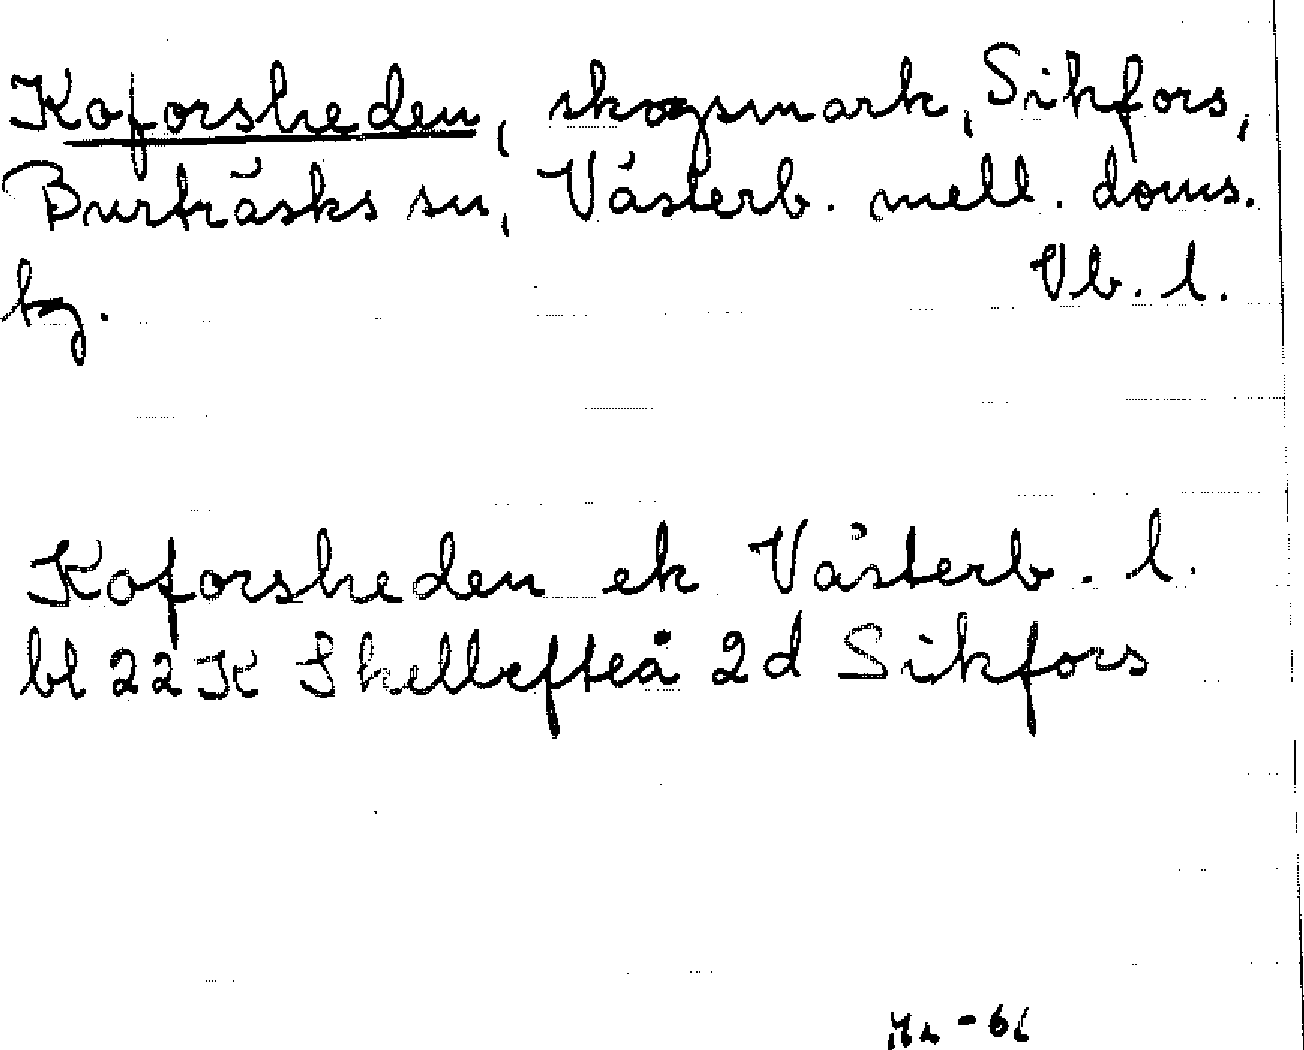 Koforsheden, skogsmark, Sikfors,
Burträsks sn, Västerb. mell. doms.
tg. Vb. l.
Koforsheden ek Västerb. l.
bl 22 K Skellefteå 2d Sikfors